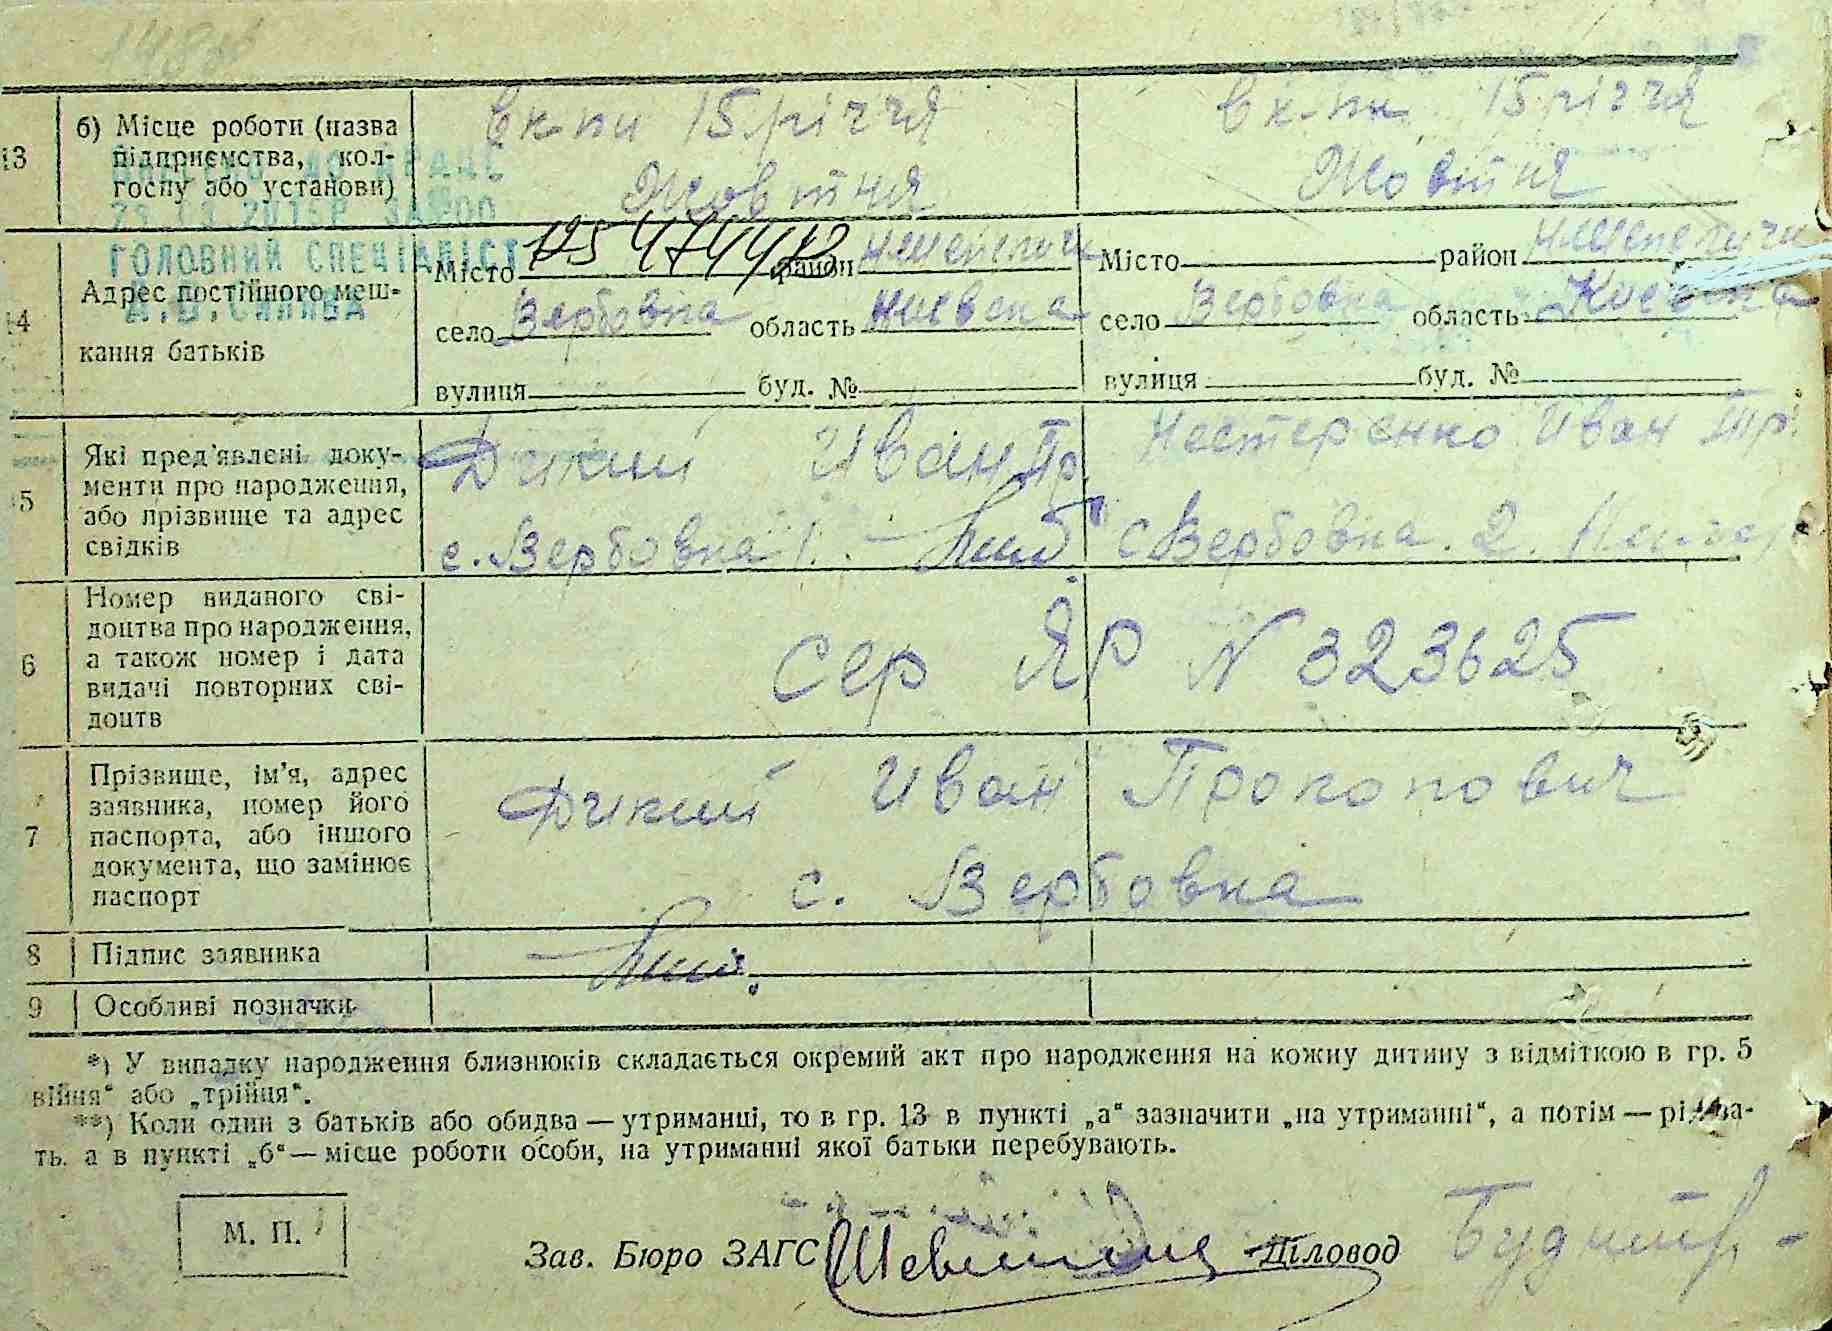 13 б) Місце роботи (назва підприємства, колгоспу або установи)
15 річчя Жовтня
15 річчя Жовтня
ГОЛОВНИЙ СПЕЦІАЛІСТ
14 Адрес постійного мешкання батьків
Місто район
село Вербовка область Киевска
вулиця буд. №
Місто район
село Вербовка область Киевска
вулиця буд. №
5 Які пред'явлені документи про народження, або прізвище та адрес свідків
Дикий Иван Пр.
с. Вербовка 1.
Нестеренко Иван
с Вербовка. 2.
6 Номер виданого свідоцтва про народження, а також номер і дата видачі повторних свідоцтв
Сер ЯР N 323625
7 Прізвище, ім'я, адрес заявника, номер його паспорта, або іншого документа, що замінює паспорт
Дикий Иван Прокопович
с. Вербовка
8 Підпис заявника
9 Особливі позначки
*) У випадку народження близнюків складається окремий акт про народження на кожну дитину з відміткою в гр. 5
війня“ або „трійця“.
**) Коли один з батьків або обидва — утриманці, то в гр. 13 в пункті „а“ зазначити „на утриманні“, а потім —
ть, а в пункті „б“ — місце роботи особи, на утриманні якої батьки перебувають.
М. П.
Зав. Бюро ЗАГС Діловод